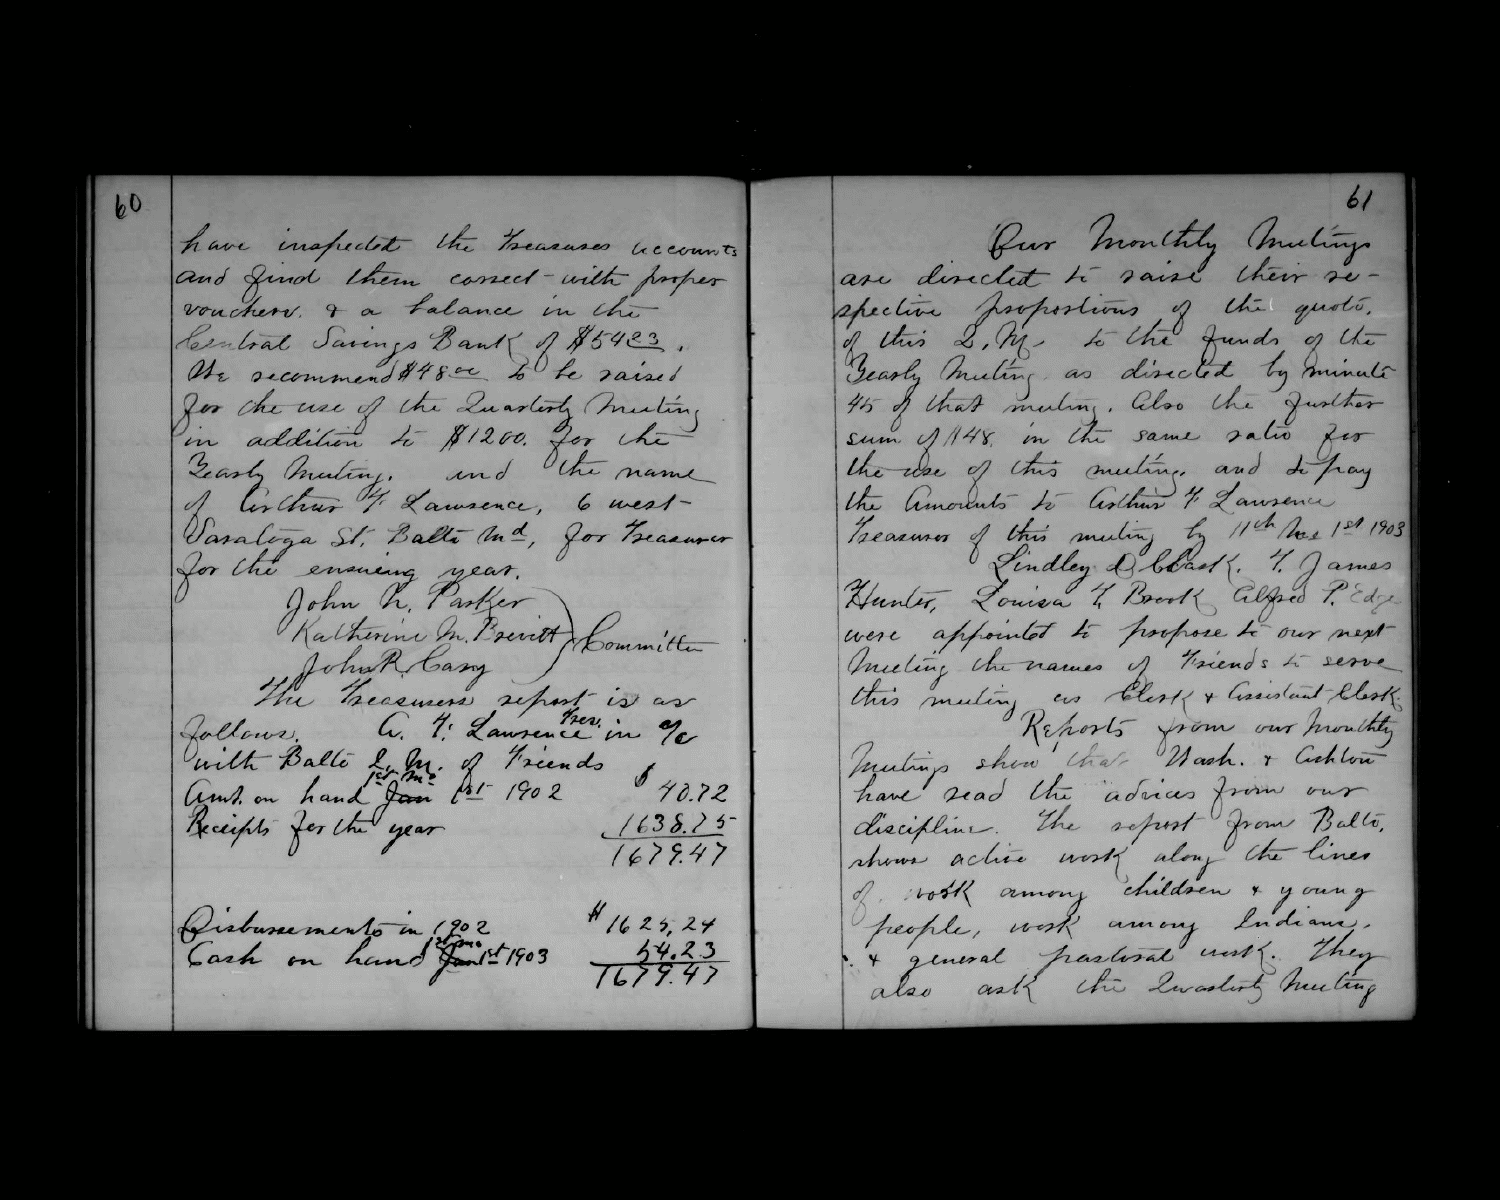 60
have inspected the Treasurers accounts
and find them correct with proper
vouchers. & a balance in the
Central Savings Bank of $54 23.
We recommend $48 00 to be raised
for the use of the Quarterly Meeting
in addition to $1200. for the
Yearly Meeting. and the name
of Arthur F Lawrence, 6 west
Saratoga St. Balto Md, for Treasurer
for the ensuing year.
John N. Parker
Katherine M. Brevitt Committee
John R. Cary
The Treasurers report is as
follows. A. F. Lawrence Tres. in a/c
with Balto Q. M. of Friends
Amt. on hand Jan 1st Mo 1st 1902 $ 40.72
Receipts for the year 1638.75
1679.47
Disbursements in 1902 $ 1625,24
Cash on hand Jan 1st mo 1st 1903 54.23
1679.47
61
Our Monthly Meetings
are directed to raise their re-
spective proportions of the quota,
of this Q. M. to the funds of the
Yearly Meeting as directed by minute
45 of that meeting. Also the further
sum of $48. in the same ratio for
the use of this meeting. and to pay
the Amounts to Arthur F Lawrence
Treasurer of this meeting by 11th Mo 1st 1903
Lindley D Clark. F. James
Hunter, Louisa F. Brook Alfred P. Edge
were appointed to propose to our next
Meeting the names of Friends to serve
this meeting as Clerk & Assistant Clerk
Reports from our Monthly
Meetings show that Wash. & Ashton
have read the advices from our
discipline. The report from Balto,
shows active work along the lines
of work among children & young
people, work among Indians,
& general pastoral work. They
also ask the Quarterly Meeting